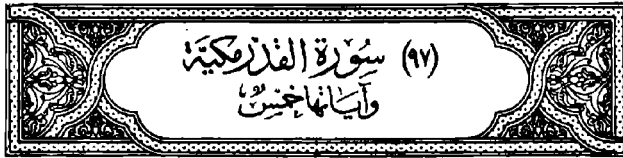 (٩٧) سُورَة القَدْر مَكيَّة
وَآيَاتُها خَمْسٌ